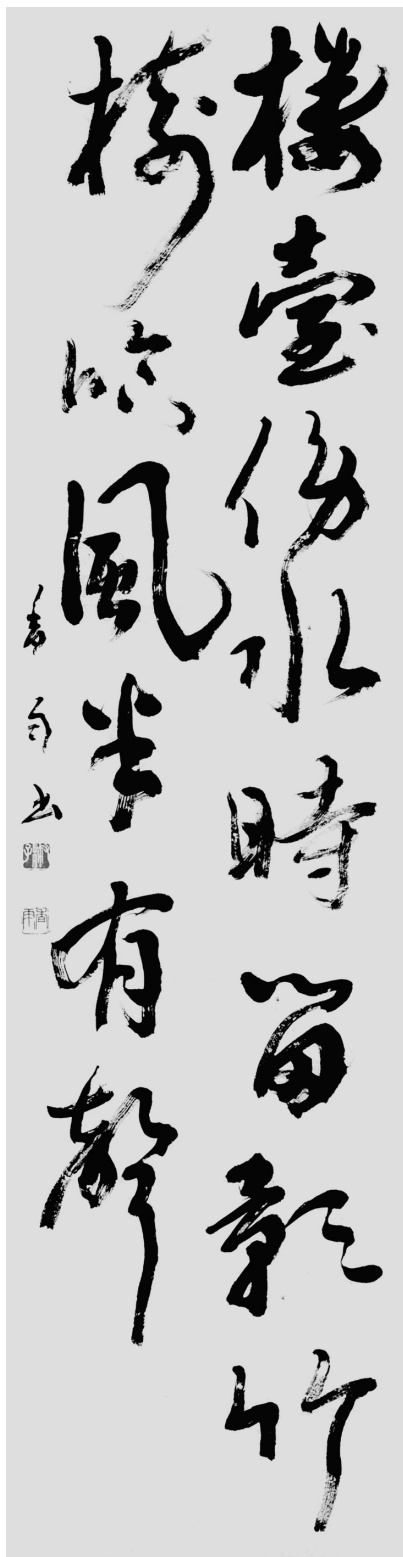 樓臺傍水時留影竹
樹臨風半有聲
书